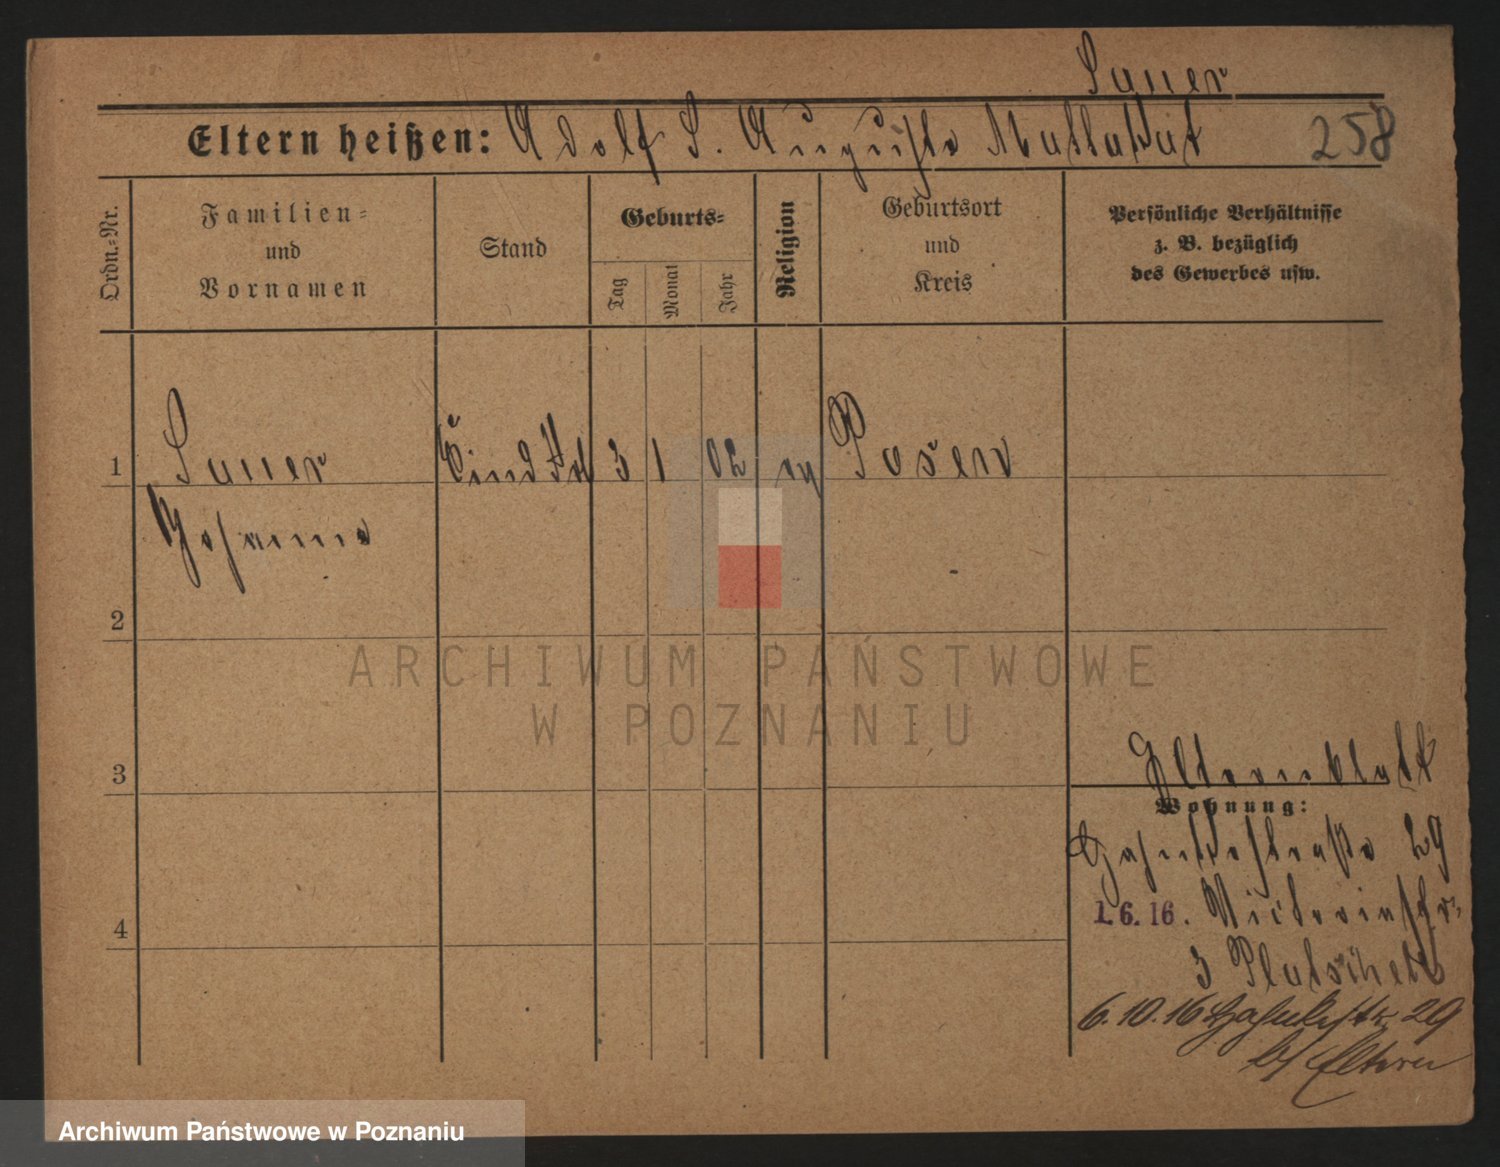 Sauer
Eltern heißen: Adolf S. Auguste
258
Ordn.=Nr.
Familien=
und
Vornamen
Stand
Geburts=
Tag
Monat
Jahr
Religion
Geburtsort
und
Kreis
Persönliche Verhältnisse
z. B. bezüglich
des Gewerbes usw.
1 Sauer 3 1 02 ev Posen
Johanna
2
ARCHIWUM PAŃSTWOWE
W POZNANIU
3
Elternblatt
Wohnung:
29
1.6.16. Victoriastr.
3
4
6.10.16 29
b/ Eltern
Archiwum Państwowe w Poznaniu